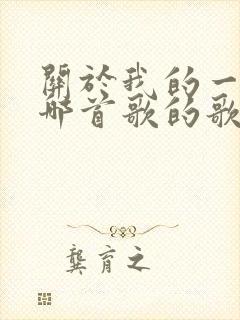 關於我的一
哪首歌的歌
龔育之